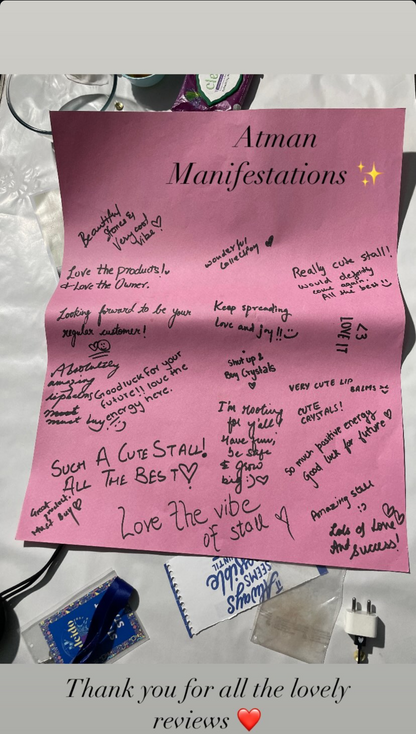 Atman
Manifestations ✨
Beautiful
stones &
Very cool
vibe! ♡
wonderful
collection ♥
Love the products!♥
& Love the Owner.
Really cute stall!
would defnitly
come again!
All the best ☺
Looking forward to be your
regular customer!
Keep spreading
love and joy!!☺
LOVE IT <3
Absolutely
amazing
lipbalms
must buy!
Good luck for your
future!! love the
energy here.
:)
Shut up &
Buy Crystals
♥
VERY CUTE LIP
BALMS
CUTE
CRYSTALS!
I'm rooting
for y'all
Have fun,
be safe
& grow
big :) ♡
so much positive energy
Good luck for future ♡
SUCH A CUTE STALL!
ALL THE BEST ♡
Great
product,
Must Buy ♡
Love the vibe
of stall ♡
Amazing stall
:)
Lots of Love
And Success!
Always
SEEMS
UNTIL
Thank you for all the lovely
reviews ❤️